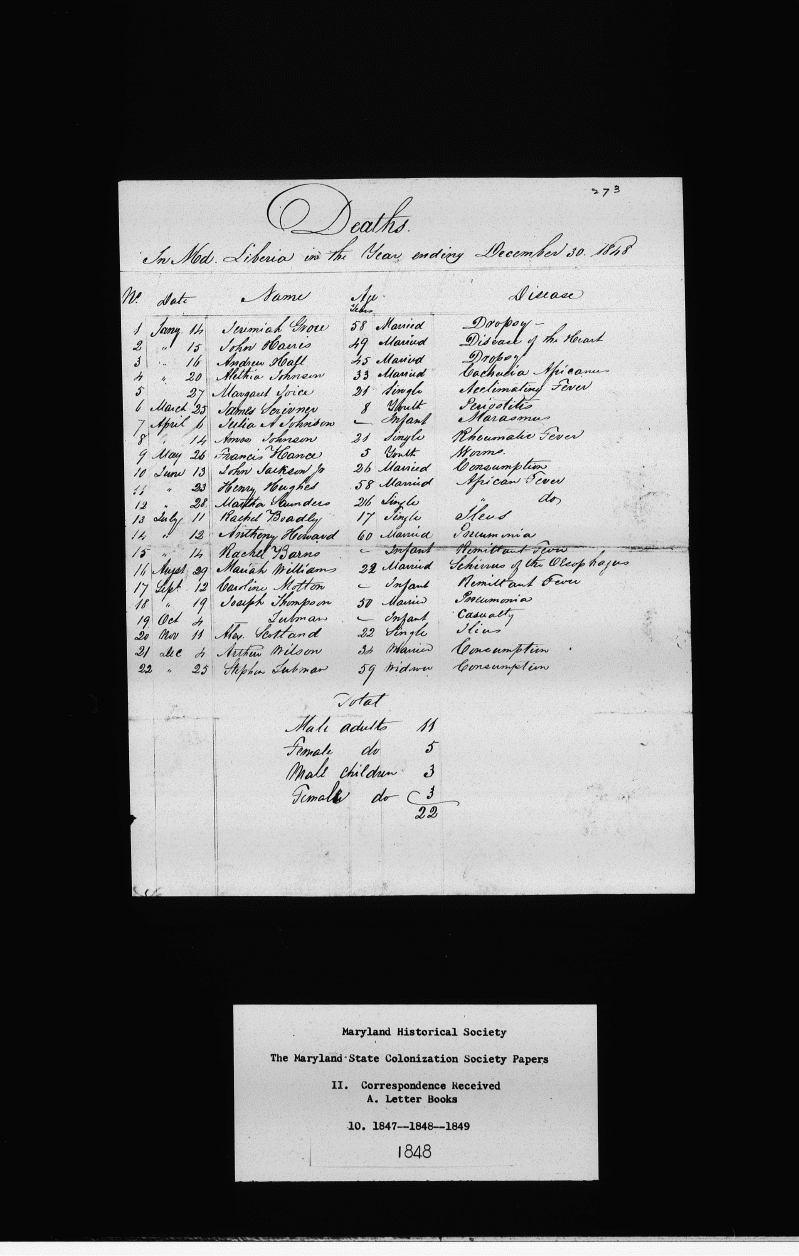 273
Deaths.
In Md. Liberia in the Year ending December 30. 1848
No. Date Name Age Years Disease
1 Jany 14 Jeremiah Grove 58 Married Dropsy –
2 " 15 John Harris 49 Married Disease of the Heart
3 " 16 Andrew Hall 45 Married Dropsy
4 " 20 Alethia Johnson 33 Married Cachexia Africanus
5 27 Margaret Joice 21 Single Acclimating Fever
6 March 25 James Scrivner 8 Youth Periostitis
7 April 6 Julia A Johnson – Infant Marasmus
8 " 14 Amos Johnson 21 Single Rheumatic Fever
9 May 26 Francis Hance 5 Youth Worms.
10 June 13 John Jackson Jr 26 Married Consumption
11 " 23 Henry Hughes 58 Married African Fever
12 " 28 Martha Saunders 26 Single " do
13 July 11 Rachel Bradly 17 Single Ileus
14 " 12 Anthony Howard 60 Married Pneumonia
15 " 14 Rachel Barns – Infant Remittant Fever
16 Augst 29 Mariah Williams 22 Married Schirrus of the Oesophagus
17 Sept. 12 Caroline Molton – Infant Remittant Fever
18 " 19 Joseph Thompson 50 Married Pneumonia
19 Oct 4 Tubman – Infant Casualty
20 Nov 11 Alex. Scotland 22 Single Ileus
21 Dec 4 Arthur Wilson 34 Married Consumption
22 " 25 Stephen Tubman 59 Widower Consumption
Total
Male adults 11
Female do 5
Male children 3
Female do 3
22
Maryland Historical Society
The Maryland State Colonization Society Papers
II. Correspondence Received
A. Letter Books
10. 1847--1848--1849
1848